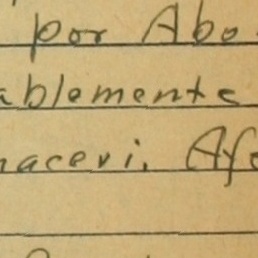 por Abo
ablemente
naceri. Afe